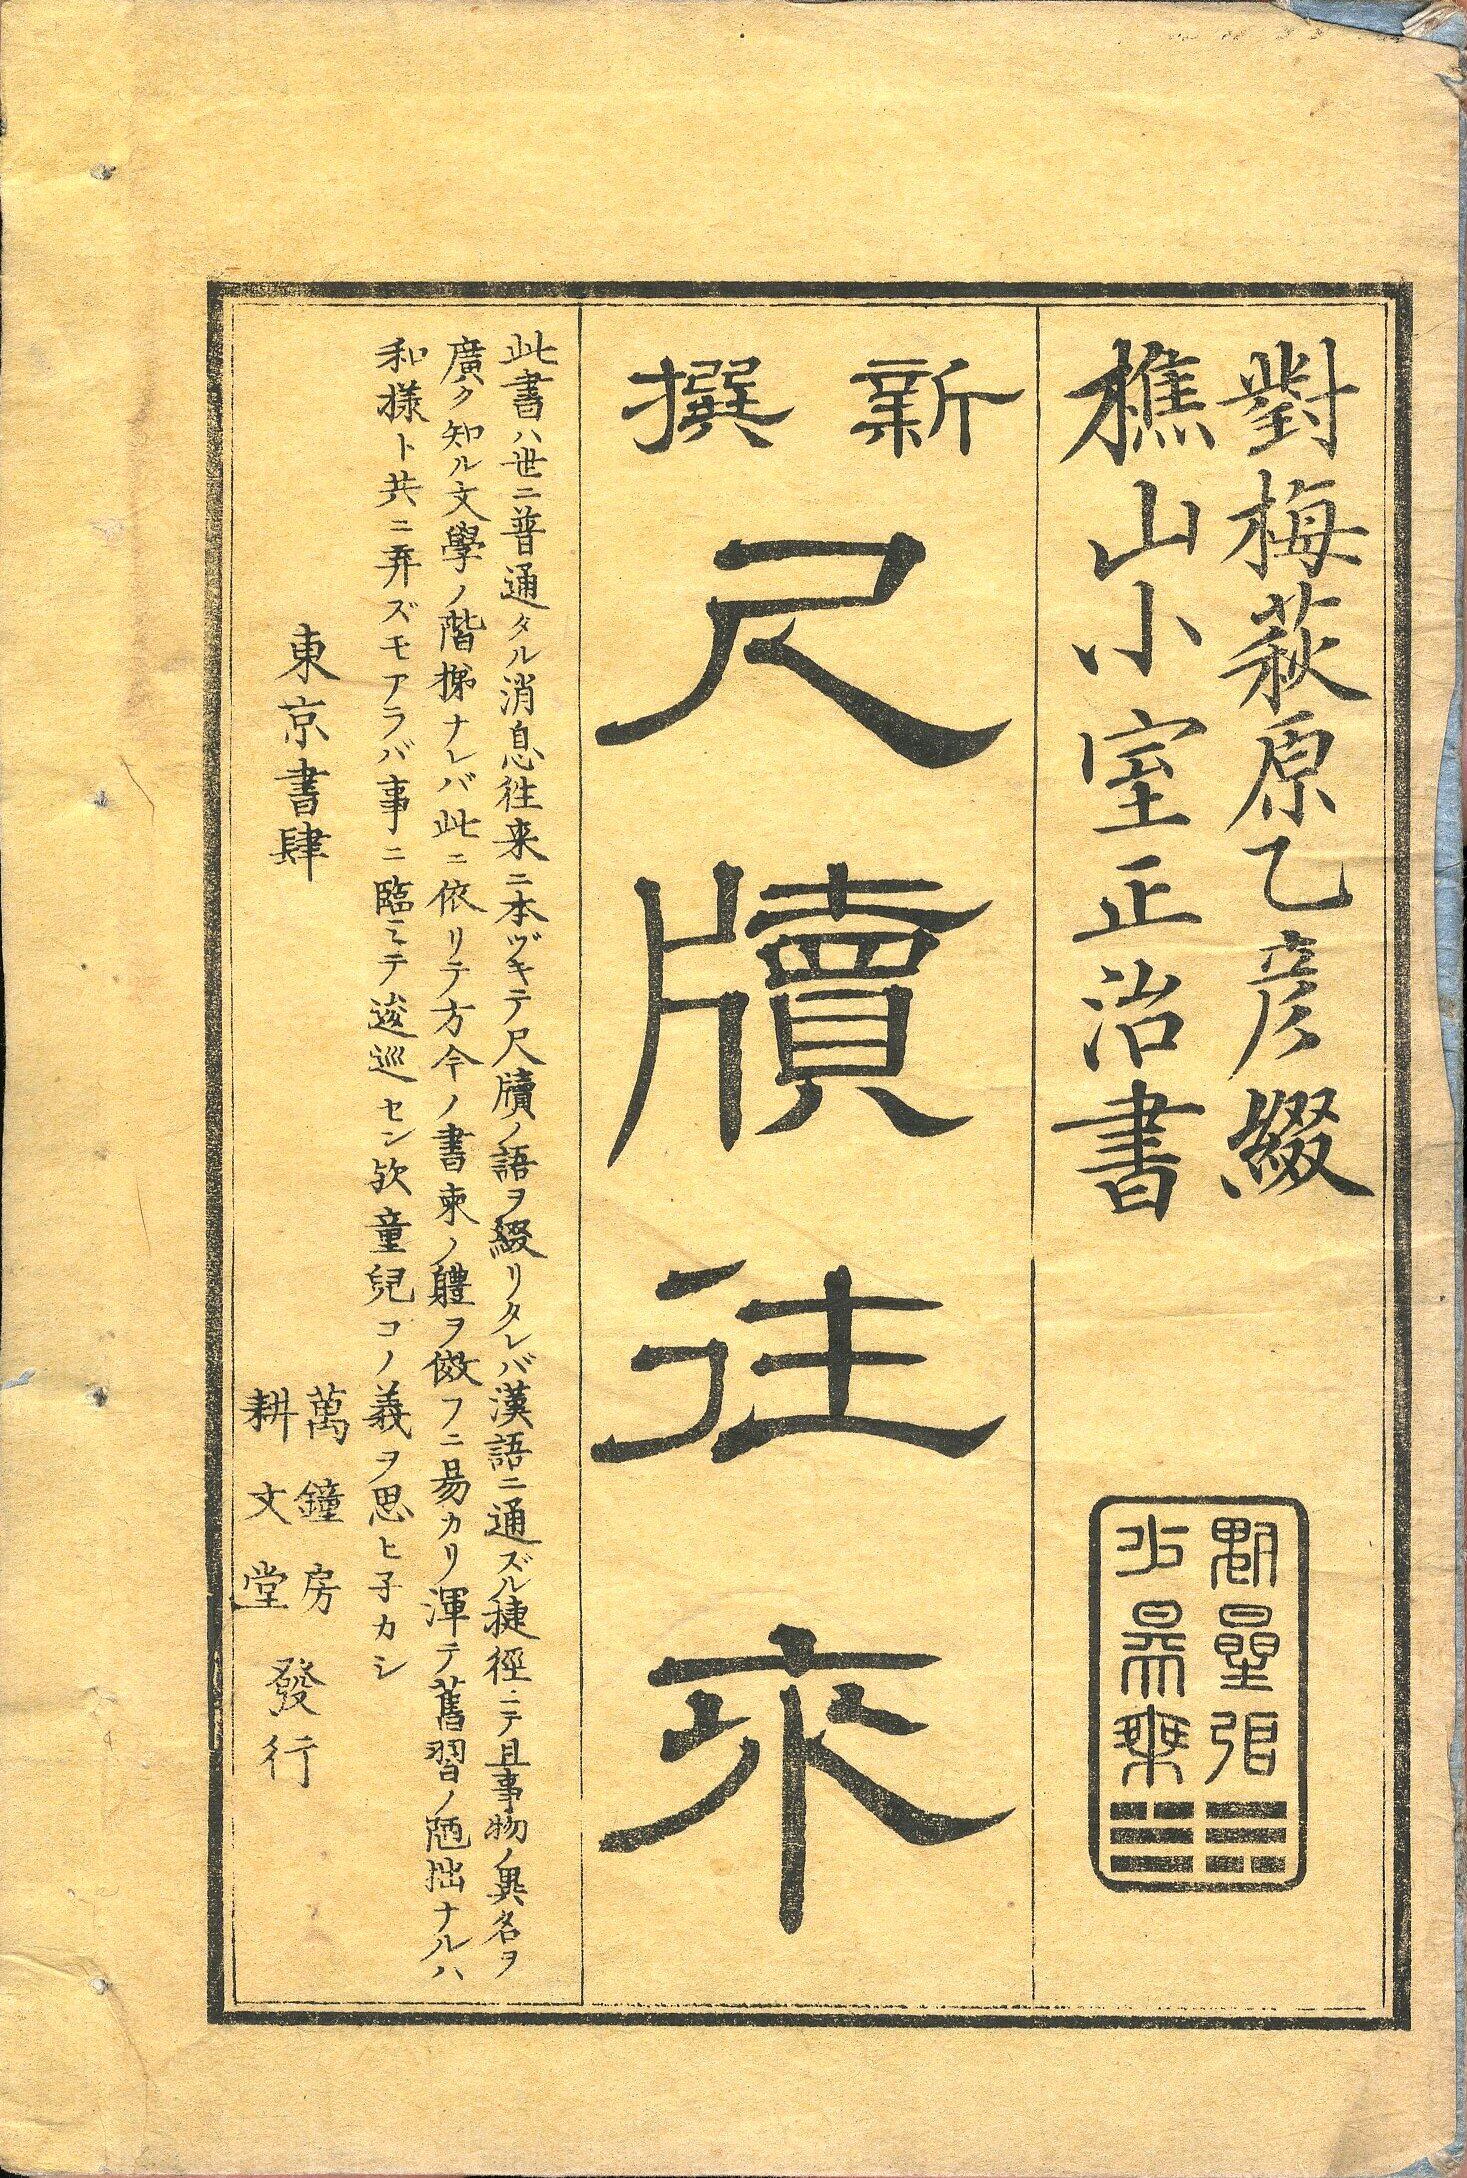 對梅萩原乙彦綴
樵山小室正治書
新撰
尺牘往来
此書ハ世ニ普通タル消息往来ニ本ヅキテ尺牘ノ語ヲ綴リタレバ漢語ニ通ズル捷徑ニテ且事物ノ異名ヲ
廣ク知ル文學ノ階梯ナレバ此ニ依リテ方今ノ書柬ノ軆ヲ傚フニ易カリ渾テ舊習ノ陋拙ナルハ
和様ト共ニ弄ズモアラバ事ニ臨ミテ逡巡セン欤童兒コノ義ヲ思ヒ子カシ
東京書肆
萬鐘房
耕文堂
發行